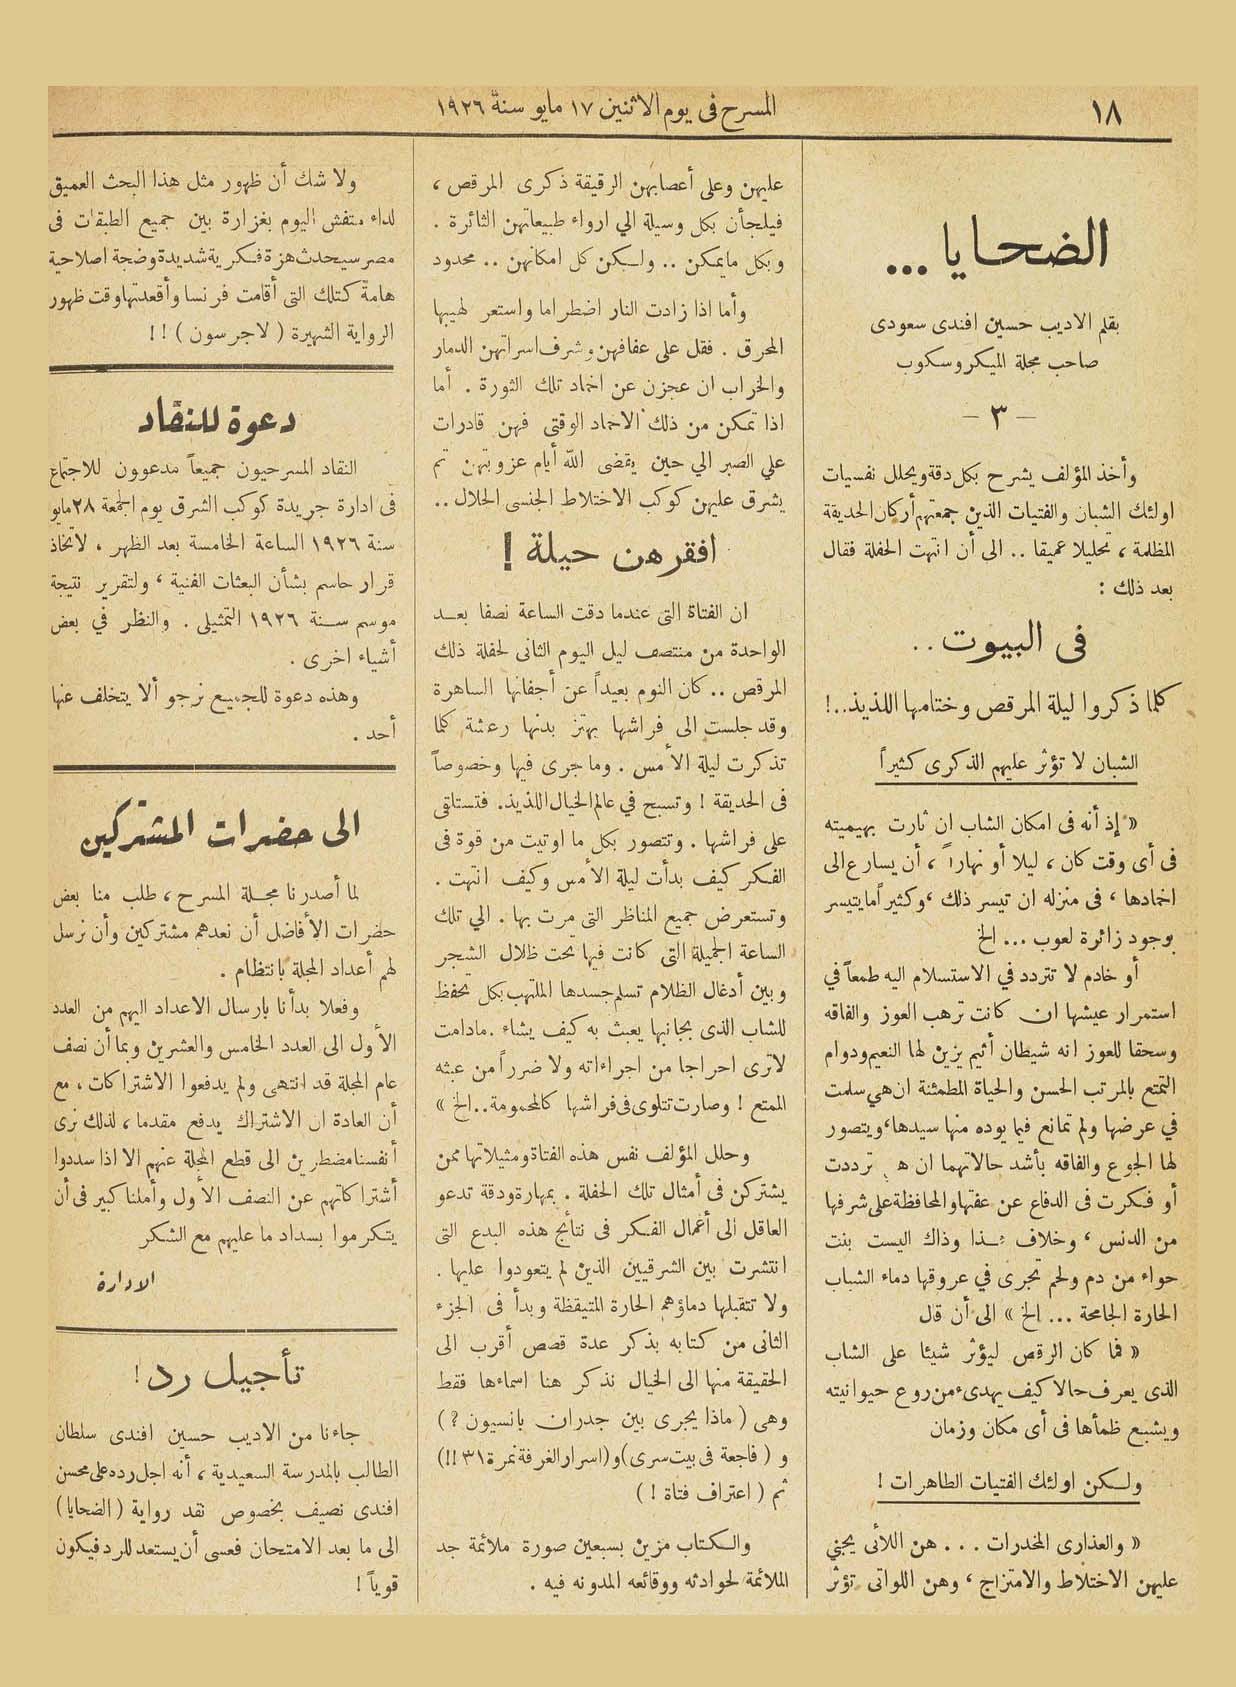 ١٨
المسرح فى يوم الاثنين ١٧ مايو سنة ١٩٢٦
الضحايا ...
بقلم الاديب حسين افندى سعودى
صاحب مجلة الميكروسكوب
— ٣ —
وأخذ المؤلف يشرح بكل دقة ويحلل نفسيات
اولئك الشبان والفتيات الذين جمعتهم أركان الحديقة
المظلمة ، تحليلا عميقا .. الى أن انتهت الحفلة فقال
بعد ذلك :
فى البيوت ..
كلما ذكروا ليلة المرقص وختامها اللذيذ..!
الشبان لا تؤثر عليهم الذكرى كثيراً
« إذ أنه فى امكان الشاب ان ثارت بهيميته
فى أى وقت كان ، ليلا أو نهاراً ، أن يسارع الى
اخمادها ، فى منزله ان تيسر ذلك ، وكثيراً مايتيسر
بوجود زائرة لعوب ... الخ
أو خادم لا تتردد في الاستسلام اليه طمعاً في
استمرار عيشها ان كانت ترهب العوز والفاقه
وسحقا للعوز انه شيطان أثيم يزين لها النعيم ودوام
التمتع بالمرتب الحسن والحياة المطمئنة ان هي سلمت
في عرضها ولم تمانع فيما يوده منها سيدها، ويتصور
لها الجوع والفاقه بأشد حالاتهما ان هى ترددت
أو فكرت فى الدفاع عن عفتها والمحافظة على شرفها
من الدنس ، وخلاف هذا وذاك اليست بنت
حواء من دم ولحم تجرى في عروقها دماء الشباب
الحارة الجامحة ... الخ » الى أن قال
« فما كان الرقص ليؤثر شيئا على الشاب
الذى يعرف حالا كيف يهدىء من روع حيوانيته
ويشبع ظمأها فى أى مكان وزمان
ولكن اولئك الفتيات الطاهرات !
« والعذارى المخدرات ... هن اللائى يجني
عليهن الاختلاط والامتزاج ، وهن اللواتى تؤثر
عليهن وعلى أعصابهن الرقيقة ذكرى المرقص ،
فيلجأن بكل وسيلة الي ارواء طبيعاتهن الثائرة .
وبكل مايمكن .. ولكن كل امكانهن .. محدود
وأما اذا زادت النار اضطراما واستعر لهيبها
المحرق . فقل على عفافهن وشرف اسراتهن الدمار
والخراب ان عجزن عن اخماد تلك الثورة . أما
اذا تمكن من ذلك الاخماد الوقتى فهن قادرات
علي الصبر الي حين يقضى الله أيام عزوبتهن ثم
يشرق عليهن كوكب الاختلاط الجنسى الحلال ..
افقرهن حيلة !
ان الفتاة التى عندما دقت الساعة نصفا بعد
الواحدة من منتصف ليل اليوم الثانى لحفلة ذلك
المرقص .. كان النوم بعيداً عن أجفانها الساهرة
وقد جلست الى فراشها يهتز بدنها رعشة كلما
تذكرت ليلة الأمس . وما جرى فيها وخصوصاً
فى الحديقة ! وتسبح في عالم الخيال اللذيذ. فتستلقى
على فراشها . وتتصور بكل ما اوتيت من قوة فى
الفكر كيف بدأت ليلة الأمس وكيف انتهت .
وتستعرض جميع المناظر التى مرت بها . الي تلك
الساعة الجميلة التى كانت فيها تحت ظلال الشجر
وبين أدغال الظلام تسلم جسدها الملتهب بكل تحفظ
للشاب الذى بجانبها يعبث به كيف يشاء . مادامت
لاترى احراجا من اجراءاته ولا ضرراً من عبثه
الممتع ! وصارت تتلوى فى فراشها كالمحمومة .. الخ »
وحلل المؤلف نفس هذه الفتاة ومثيلاتها ممن
يشتركن فى أمثال تلك الحفلة . بمهارة ودقة تدعو
العاقل الى أعمال الفكر فى نتائج هذه البدع التى
انتشرت بين الشرقيين الذين لم يتعودوا عليها .
ولا تتقبلها دماؤهم الحارة المتيقظة وبدأ فى الجزء
الثانى من كتابه بذكر عدة قصص أقرب الى
الحقيقة منها الى الخيال نذكر هنا اسماءها فقط
وهى ( ماذا يجرى بين جدران بانسيون ؟ )
و ( فاجعة فى بيت سرى ) و ( اسرار الغرفة نمرة ٣١ !! )
ثم ( اعتراف فتاة ! )
والكتاب مزين بسبعين صورة ملائمة جد
الملائمة لحوادثه ووقائعه المدونه فيه .
ولا شك أن ظهور مثل هذا البحث العميق
لداء متفش اليوم بغزارة بين جميع الطبقات فى
مصر سيحدث هزة فكرية شديدة وضجة اصلاحية
هامة كتلك التى أقامت فرنسا وأقعدتها وقت ظهور
الرواية الشهيرة ( لا جرسون ) !!
دعوة للنقاد
النقاد المسرحيون جميعاً مدعوون للاجتماع
فى ادارة جريدة كوكب الشرق يوم الجمعة ٢٨ مايو
سنة ١٩٢٦ الساعة الخامسة بعد الظهر ، لاتخاذ
قرار حاسم بشأن البعثات الفنية ، ولتقرير نتيجة
موسم سنة ١٩٢٦ التمثيلى . والنظر في بعض
أشياء اخرى .
وهذه دعوة للجميع نرجو ألا يتخلف عنها
أحد .
الى حضرات المشتركين
لما أصدرنا مجلة المسرح ، طلب منا بعض
حضرات الأفاضل أن نعدهم مشتركين وأن نرسل
لهم أعداد المجلة بانتظام .
وفعلا بدأنا بارسال الاعداد اليهم من العدد
الأول الى العدد الخامس والعشرين وبما أن نصف
عام المجلة قد انتهى ولم يدفعوا الاشتراكات ، مع
أن العادة ان الاشتراك يدفع مقدما ، لذلك نرى
أنفسنا مضطرين الى قطع المجلة عنهم الا اذا سددوا
أشتراكاتهم عن النصف الأول وأملنا كبير فى أن
يتكرموا بسداد ما عليهم مع الشكر
الادارة
تأجيل رد !
جاءنا من الاديب حسين افندى سلطان
الطالب بالمدرسة السعيدية ، أنه اجل رده على محسن
افندى نصيف بخصوص نقد رواية ( الضحايا )
الى ما بعد الامتحان فعسى أن يستعد للرد فيكون
قوياً !